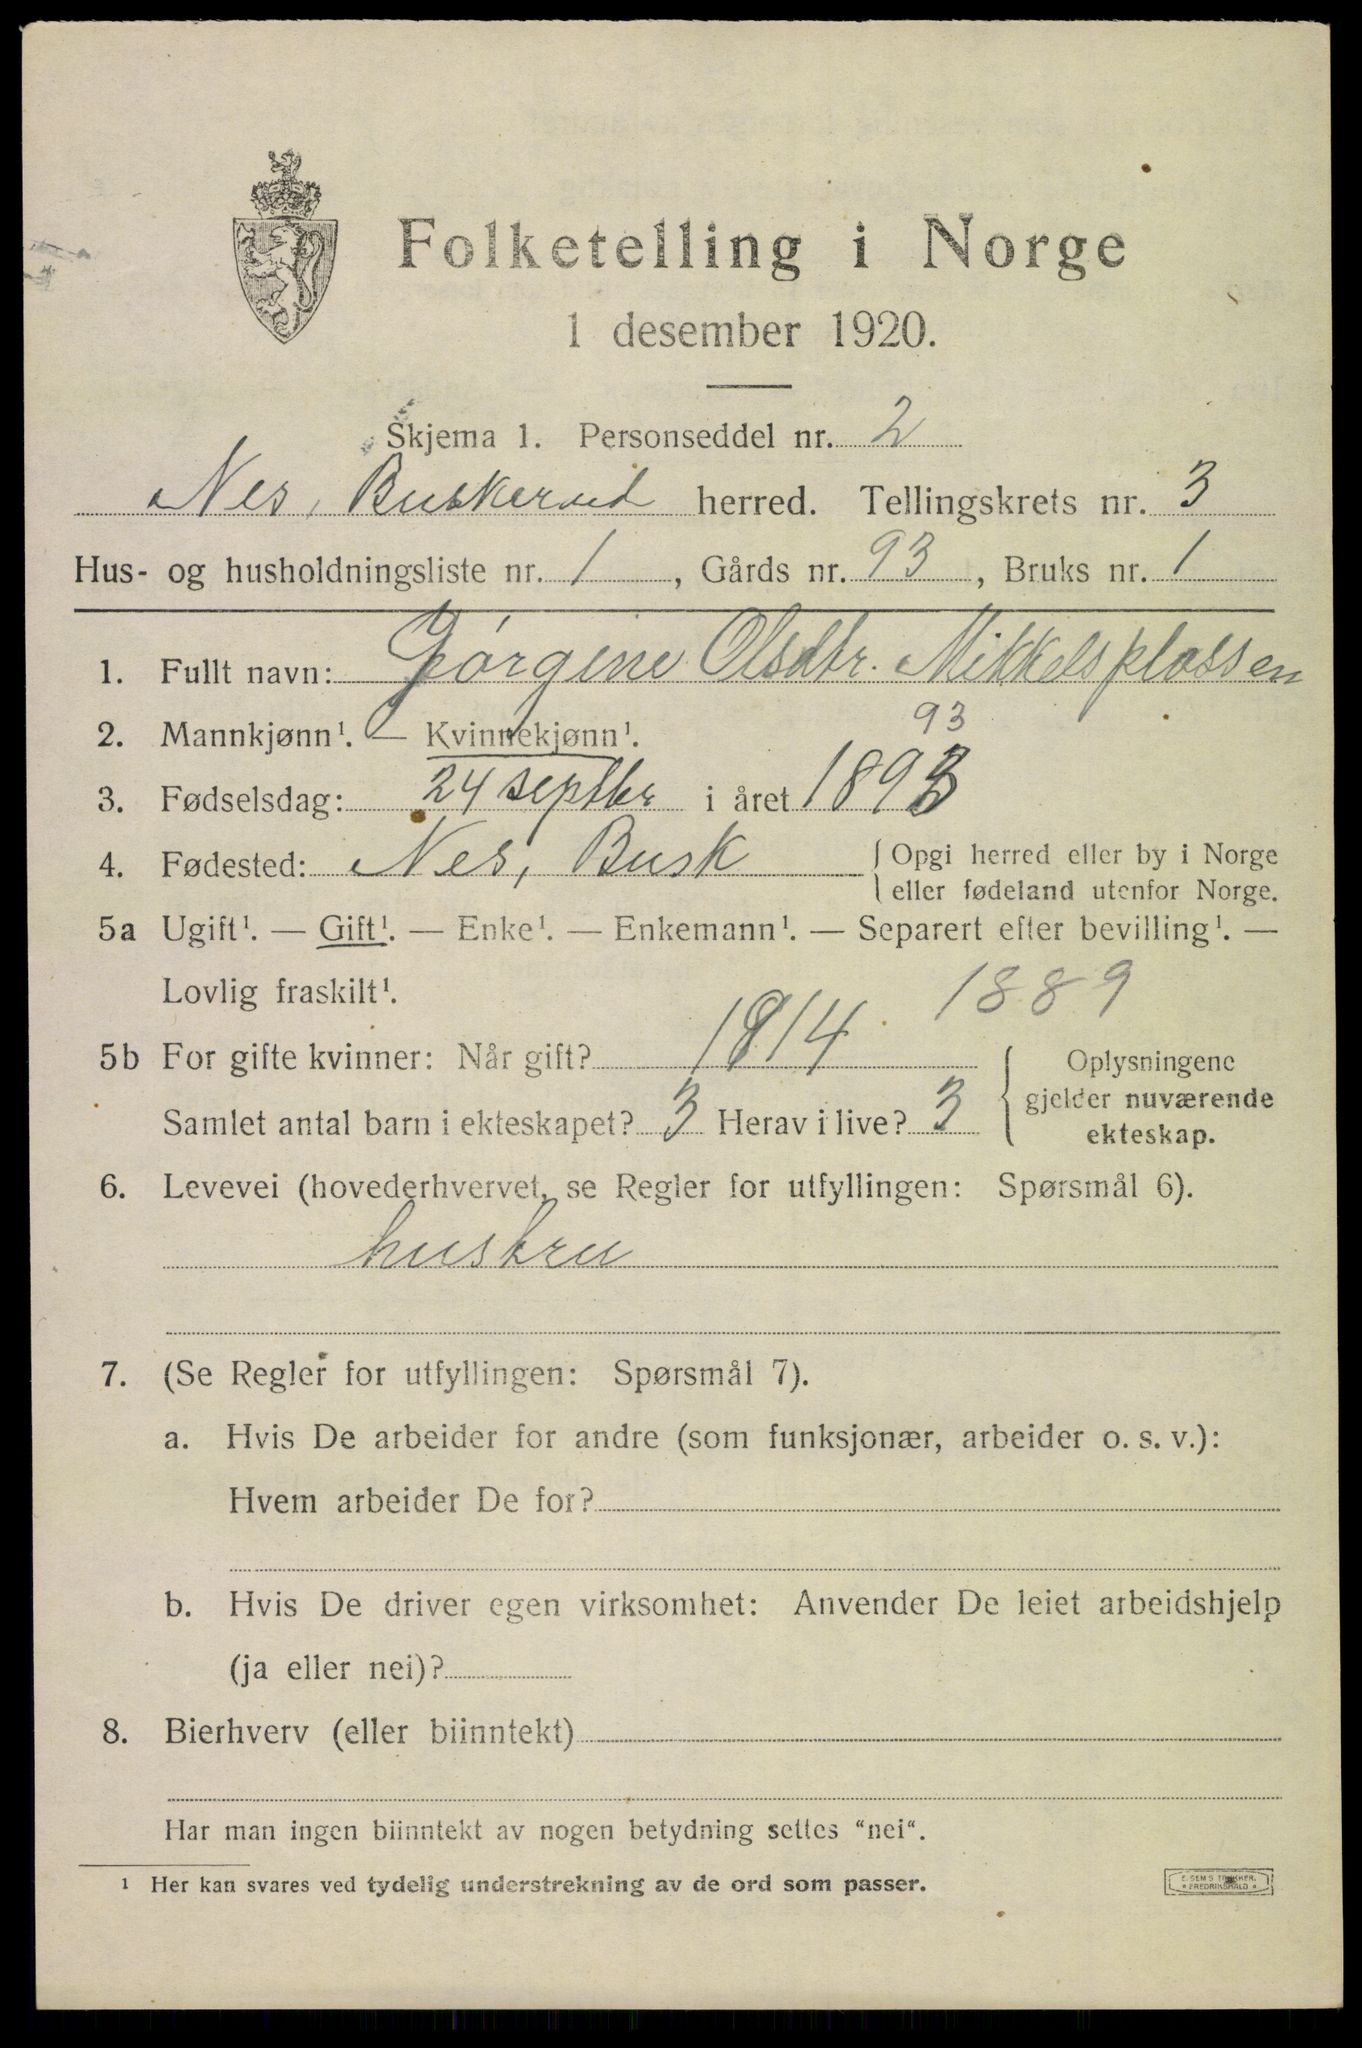 Folketelling i Norge
1 desember 1920.
Skjema 1. Personseddel nr. 2
Nes, Buskerud herred. Tellingskrets nr. 3
Hus- og husholdningsliste nr. 1, Gårds nr. 93, Bruks nr. 1
1. Fullt navn: Jørgine Olsdtr. Mikkelsplassen
2. Mannkjønn¹. — Kvinnekjønn¹.
93
3. Fødselsdag: 24 septbr i året 1893
4. Fødested: Nes, Busk { Opgi herred eller by i Norge
eller fødeland utenfor Norge.
5a Ugift¹. — Gift¹. — Enke¹. — Enkemann¹. — Separert efter bevilling¹. —
Lovlig fraskilt¹.
1889
5b For gifte kvinner: Når gift? 1914
Samlet antal barn i ekteskapet? 3 Herav i live? 3
{ Oplysningene
gjelder nuværende
ekteskap.
6. Levevei (hovederhvervet, se Regler for utfyllingen: Spørsmål 6).
hustru
7. (Se Regler for utfyllingen: Spørsmål 7).
a. Hvis De arbeider for andre (som funksjonær, arbeider o. s. v.):
Hvem arbeider De for?
b. Hvis De driver egen virksomhet: Anvender De leiet arbeidshjelp
(ja eller nei)?
8. Bierhverv (eller biinntekt)
Har man ingen biinntekt av nogen betydning settes "nei".
¹ Her kan svares ved tydelig understrekning av de ord som passer.
E. SEM'S TRYKKERI.
* FREDRIKSHALD *